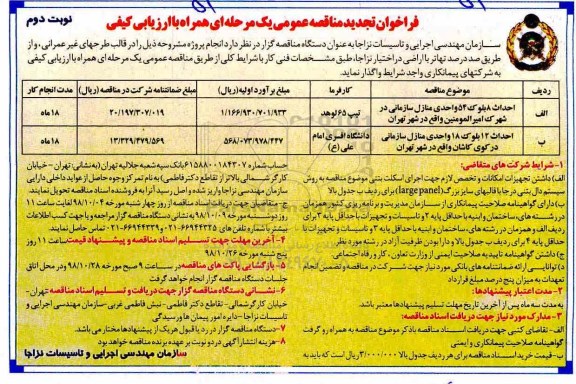 نوبت دوم
فراخوان تجدید مناقصه عمومی یک مرحله ای همراه با ارزیابی کیفی
سازمان مهندسی اجرایی و تاسیسات نزاجا به عنوان دستگاه مناقصه گزار در نظر دارد انجام پروژه مشروحه ذیل را در قالب طرحهای غیر عمرانی، و از
طریق صد در صد تهاتر با اراضی در اختیار نزاجا، طبق مشخصات فنی کار با شرایط کلی از طریق مناقصه عمومی یک مرحله ای همراه با ارزیابی کیفی
به شرکتهای پیمانکاری واجد شرایط واگذار نماید.
ردیف موضوع مناقصه کارفرما مبلغ برآورد اولیه (ریال) مبلغ ضمانتنامه شرکت در مناقصه (ریال) مدت انجام کار
الف احداث ۸ بلوک ۵۴ واحدی منازل سازمانی در شهرک امیرالمومنین واقع در شهر تهران تیپ ۶۵ نوهد ۱/۱۶۶/۹۳۰/۷۰۱/۹۳۳ ۲۰/۱۹۷/۳۰۷/۰۱۹ ۱۸ماه
ب احداث ۱۲ بلوک ۱۸ واحدی منازل سازمانی در کوی کاشان واقع در شهر تهران دانشگاه افسری امام علی (ع) ۵۶۸/۰۷۳/۹۷۸/۴۴۷ ۱۳/۳۲۹/۴۷۹/۵۶۹ ۱۸ماه
۱- شرایط شرکت های متقاضی:
الف) داشتن تجهیزات امکانات و تخصص لازم جهت اجرای اسکلت بتنی موضوع مناقصه به روش
سیستم دال بتنی درجا با قالبهای سایز بزرگ (large panel) برای ردیف ب جدول بالا
ب) دارای گواهینامه صلاحیت پیمانکاری از سازمان مدیریت و برنامه ریزی کشور همزمان
در رشته های، ساختمان و ابنیه با حداقل پایه ۲ و تاسیسات و تجهیزات با حداقل پایه ۳ برای
ردیف الف و همزمان در رشته های، ساختمان و ابنیه با حداقل پایه ۳ و تاسیسات و تجهیزات با
حداقل پایه ۴ برای ردیف ب جدول بالا و دارا بودن ظرفیت آزاد در رشته مورد نظر
ج) داشتن گواهینامه تایید به صلاحیت ایمنی از وزارت تعاون، کار و رفاه اجتماعی
د) توانایی ارائه ضمانتنامه های بانکی مورد نیاز جهت شرکت در مناقصه و تضمین انجام
تعهدات به میزان پنج درصد مبلغ قرارداد
۲- مدت اعتبار پیشنهادها:
به مدت سه ماه پس از آخرین تاریخ مهلت تسلیم پیشنهادها معتبر باشد.
۳- مدارک مورد نیاز جهت دریافت اسناد مناقصه:
الف- تقاضای کتبی جهت دریافت اسناد مناقصه با ذکر موضوع مناقصه به همراه رو گرفت
گواهینامه صلاحیت پیمانکاری و ایمنی
ب- قیمت خرید اسناد مناقصه برای هر ردیف جدول بالا ۳/۰۰۰/۰۰۰ ریال است که باید به
حساب شماره ۶۱۵۸۸۰۰۱۸۴۳۰۷ بانک سپه شعبه جلالیه تهران (به نشانی تهران - خیابان
کارگر شمالی بالاتر از تقاطع دکتر فاطمی) به نام تمرکز وجوه حاصل از عواید داخلی دارایی
سازمان مهندسی نزاجا واریز شده و اصل رسید آنرا به فروشنده اسناد مناقصه تحویل نمایند.
ج- متقاضیان جهت دریافت اسناد مناقصه از روز چهار شنبه مورخه ۹۸/۱۰/۰۴ لغایت ساعت ۱۱
روز دوشنبه مورخه ۹۸/۱۰/۰۹ به نشانی دستگاه مناقصه گزار مراجعه و یا جهت کسب اطلاعات
بیشتر با شماره تلفن های ۶۶۹۴۴۳۳۵-۰۲۱ و ۶۶۹۴۴۳۳۹-۰۲۱ تماس حاصل نمایند.
۴- آخرین مهلت جهت تسلیم اسناد مناقصه و پیشنهاد قیمت: ساعت ۱۱ روز
پنج شنبه مورخه ۹۸/۱۰/۲۶
۵- بازگشایی پاکت های مناقصه: در ساعت ۹ صبح مورخه ۹۸/۱۰/۲۸ در محل اتاق
جلسات دستگاه مناقصه گزار انجام خواهد گرفت.
۶- نشانی دستگاه مناقصه گزار جهت دریافت و تسلیم اسناد مناقصه: تهران-
خیابان کارگر شمالی- تقاطع دکتر فاطمی- نبش فاطمی غربی- سازمان مهندسی اجرایی و
تاسیسات نزاجا- دایره امور پیمان ها و رسیدگی
۷- دستگاه مناقصه گزار در رد یا قبول هر یک از پیشنهادها مختار می باشد.
۸- هزینه انتشار آگهی در دو نوبت بر عهده برنده مناقصه خواهد بود
سازمان مهندسی اجرایی و تاسیسات نزاجا